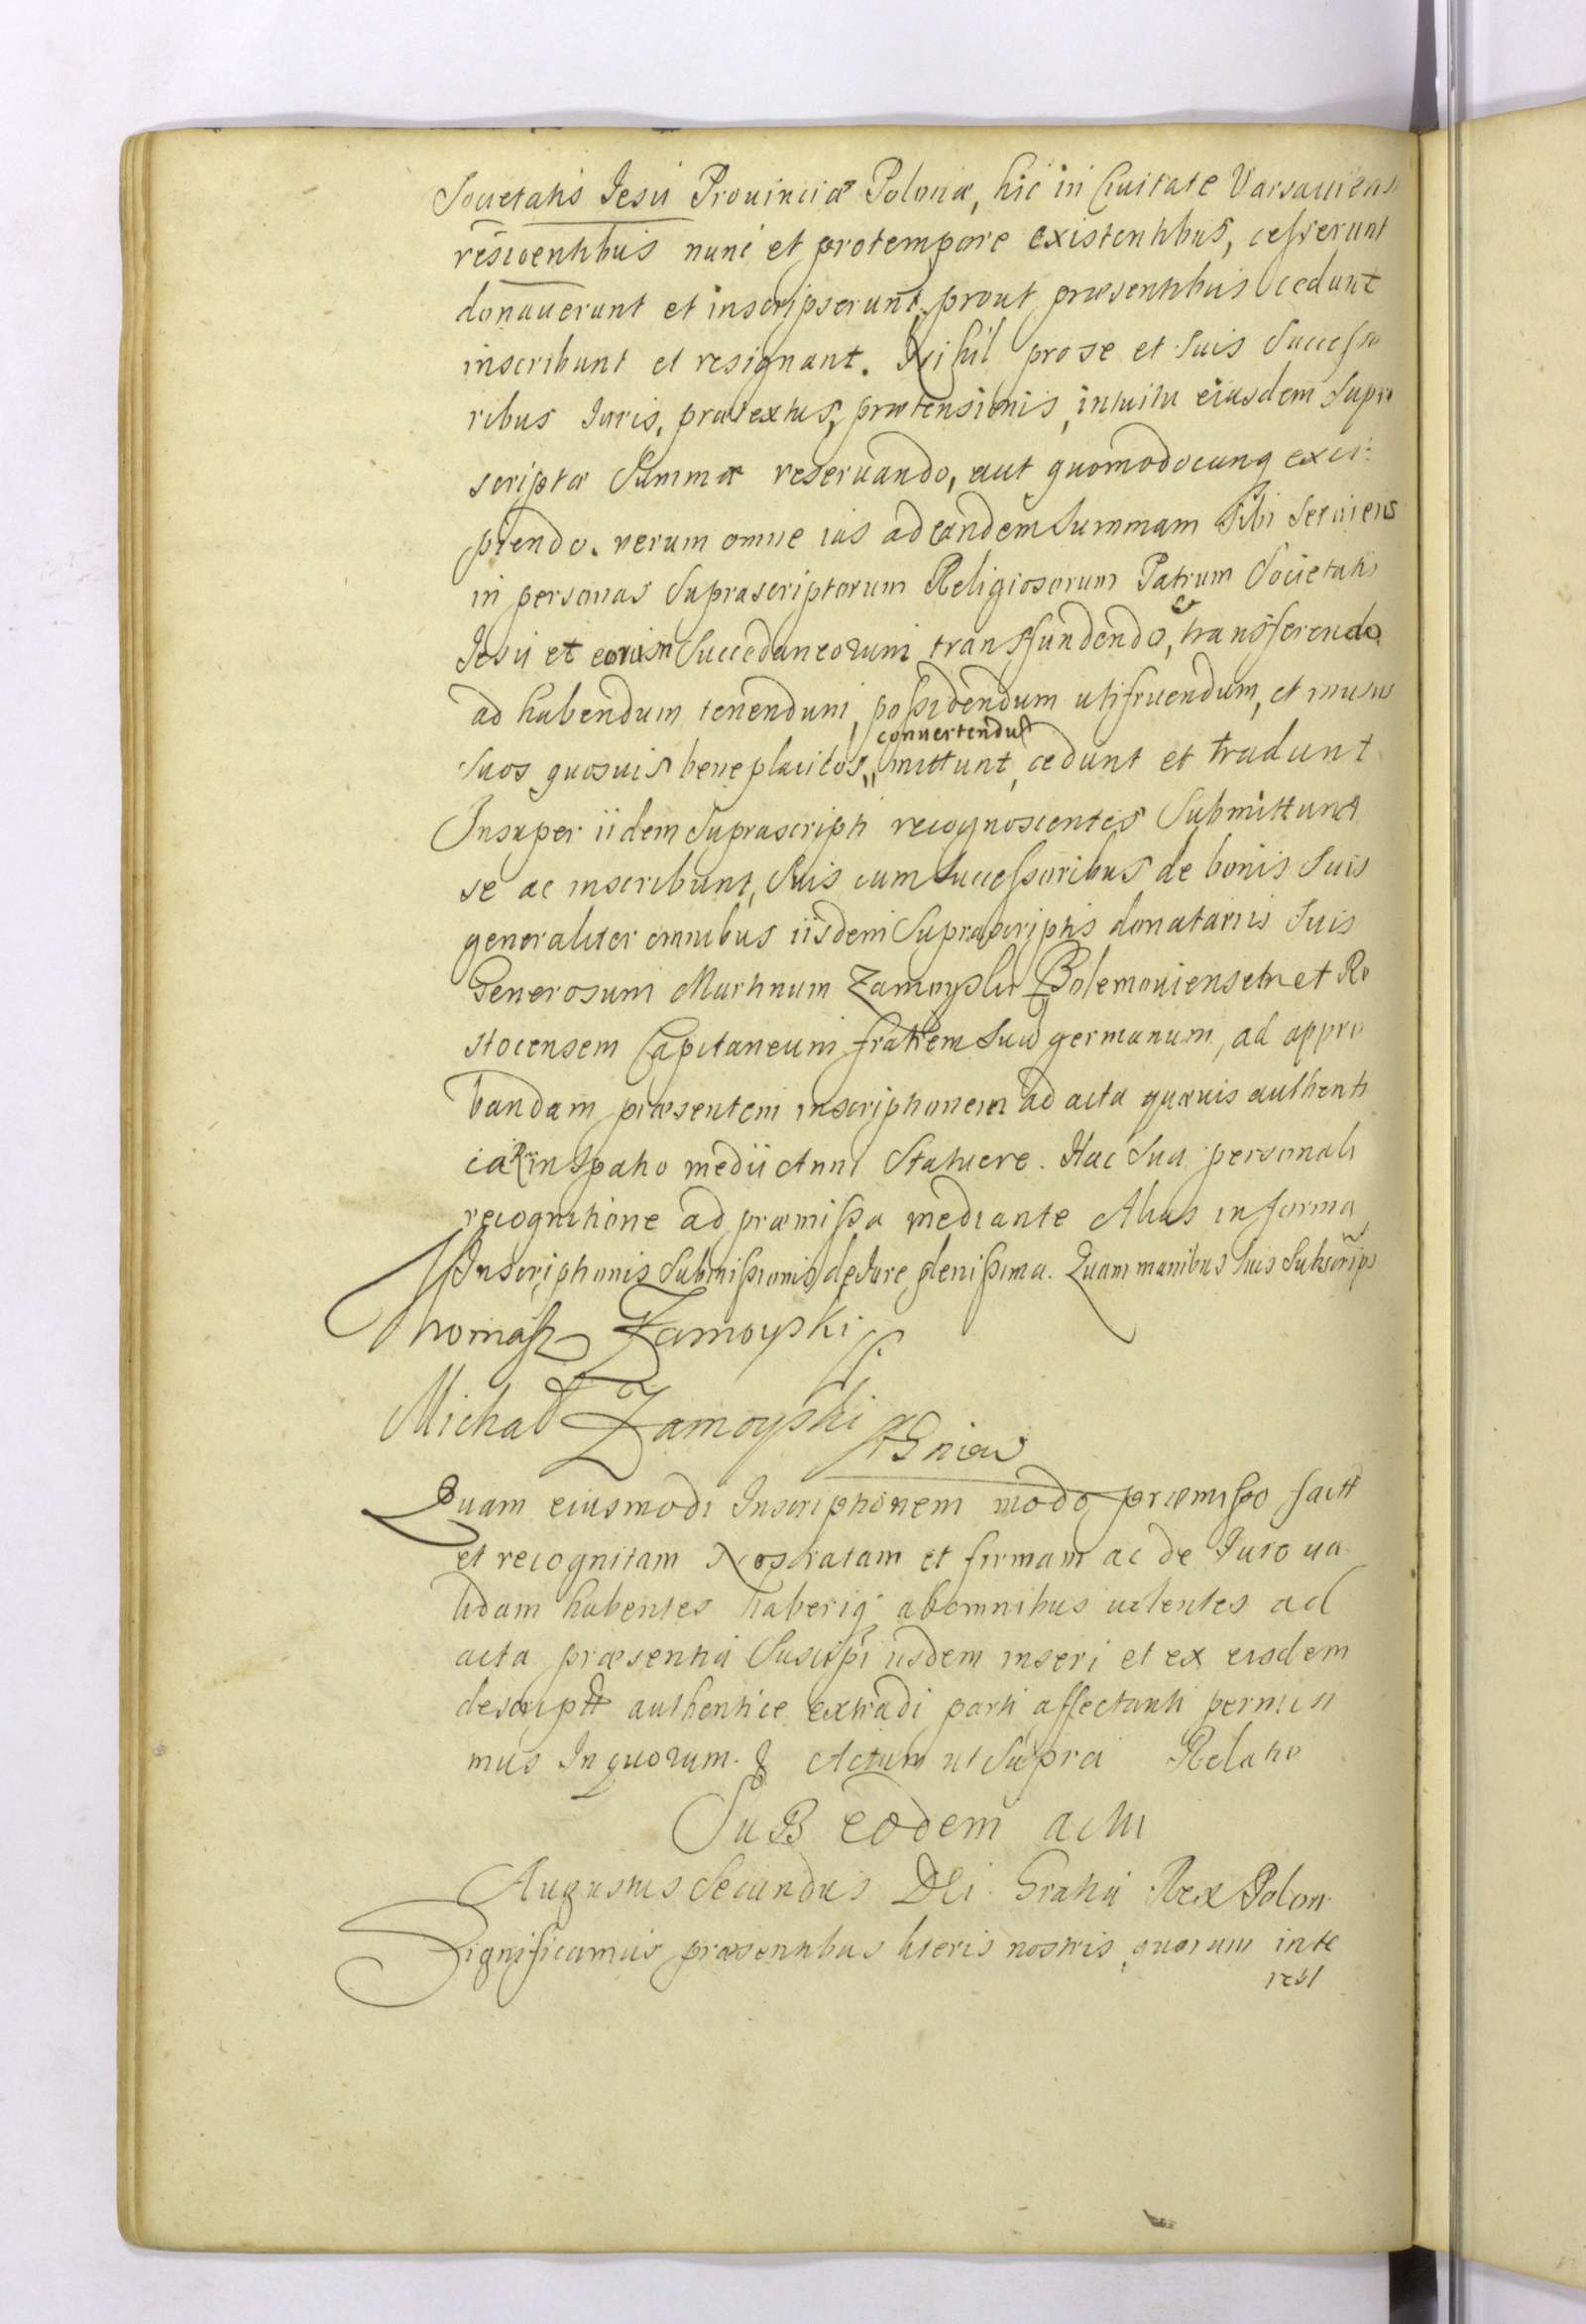 Societatis Jesu Prouinciæ Poloniæ, hic in Ciuitate Varsauiensi
residentibus nunc et protempore existentibus, cesserunt
donauerunt et inscripserunt, prout præsentibus cedunt
inscribunt et resignant. Nihil prose et suis Successo
ribus Juris, prætextus, prætensionis, intuitu eiusdem supra
scriptæ Summæ reseruando, aut quomodocunq exci:
piendo. verum omne ius ad eandem Summam sibi seruiens
in personas Suprascriptorum Religiosorum Patrum Societatis
Jesu et eorum Succedaneorum transfundendo, et transferendo
ad habendum tenendum, possidendum utifruendum, et inusus
convertendum
suos quosuis beneplacitos, mittunt, cedunt et tradunt
Insuper iidem Suprascripti recognoscentes Submittunt
se ac inscribunt, Suis cum Successoribus de bonis Suis
generaliter omnibus iisdem Suprascriptis donatariis Suis
Generosum Martinum Zamoyski Bolemouiensem et Ro
stocensem Capitaneum fratrem suū germanum, ad appro
bandam præsentem inscriptionem ad acta quæuis authenti
ca in spatio medii Anni Statuere. Hac sua personali
recognitione ad præmissa mediante Alias in forma
Inscriptionis Submissionis de Jure plenissima. Quam manibus suis Subscrips
Thomasz Zamoyski
Michał Zamoyski
Quam eiusmodi Inscriptionem modo præmisso factā
et recognitam Nos ratam et firmam ac de Jure ua
lidam habentes haberiq abomnibus uolentes ad
acta præsentia Suscipi iisdem inseri et ex eisdem
descriptā authentice extradi parti affectanti permisi
mus In quorum. & Actum ut Supra Relatio
SuB eodem actu
Augustus Secundus Dei Gratia Rex Polon
Significamus præsentibus literis nostris, quorum inte
rest